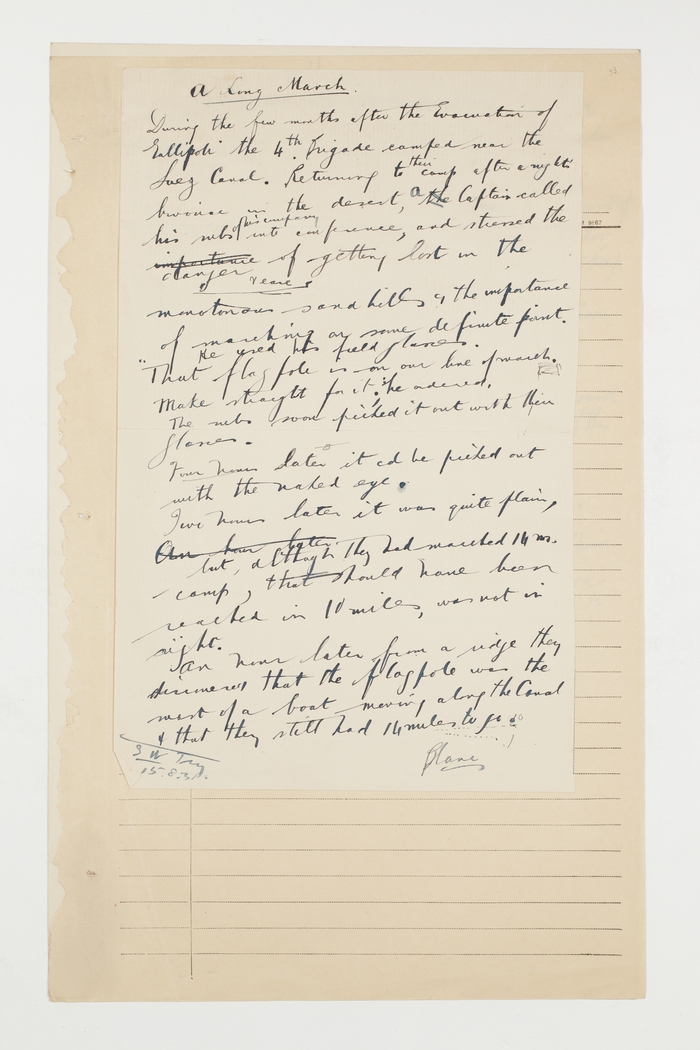 A Long March.
During the few months after the Evacuation of
Gallipoli the 4th Brigade camped near the
Suez Canal. Returning to their camp after a night's
bivouac in the desert, a the Captain called
his subs of his company into conference, and stressed the
importance danger of getting lost in the
monotonous sand hills & the importance
of marching on some definite point.
He used his field glasses.
"That flagpole is on our line of march.
Make straight for it", he ordered.
The subs soon picked it out with their
glasses.
Four hours later it cd be picked out
with the naked eye.
Two hours later it was quite plain,
An hour later
but, although they had marched 14 ms.
camp, that should have been
reached in 10 miles, was not in
sight.
An hour later from a ridge they
discovered that the flagpole was the
mast of a boat moving along the Canal
& that they still had 14 miles to go.
15.8.31.